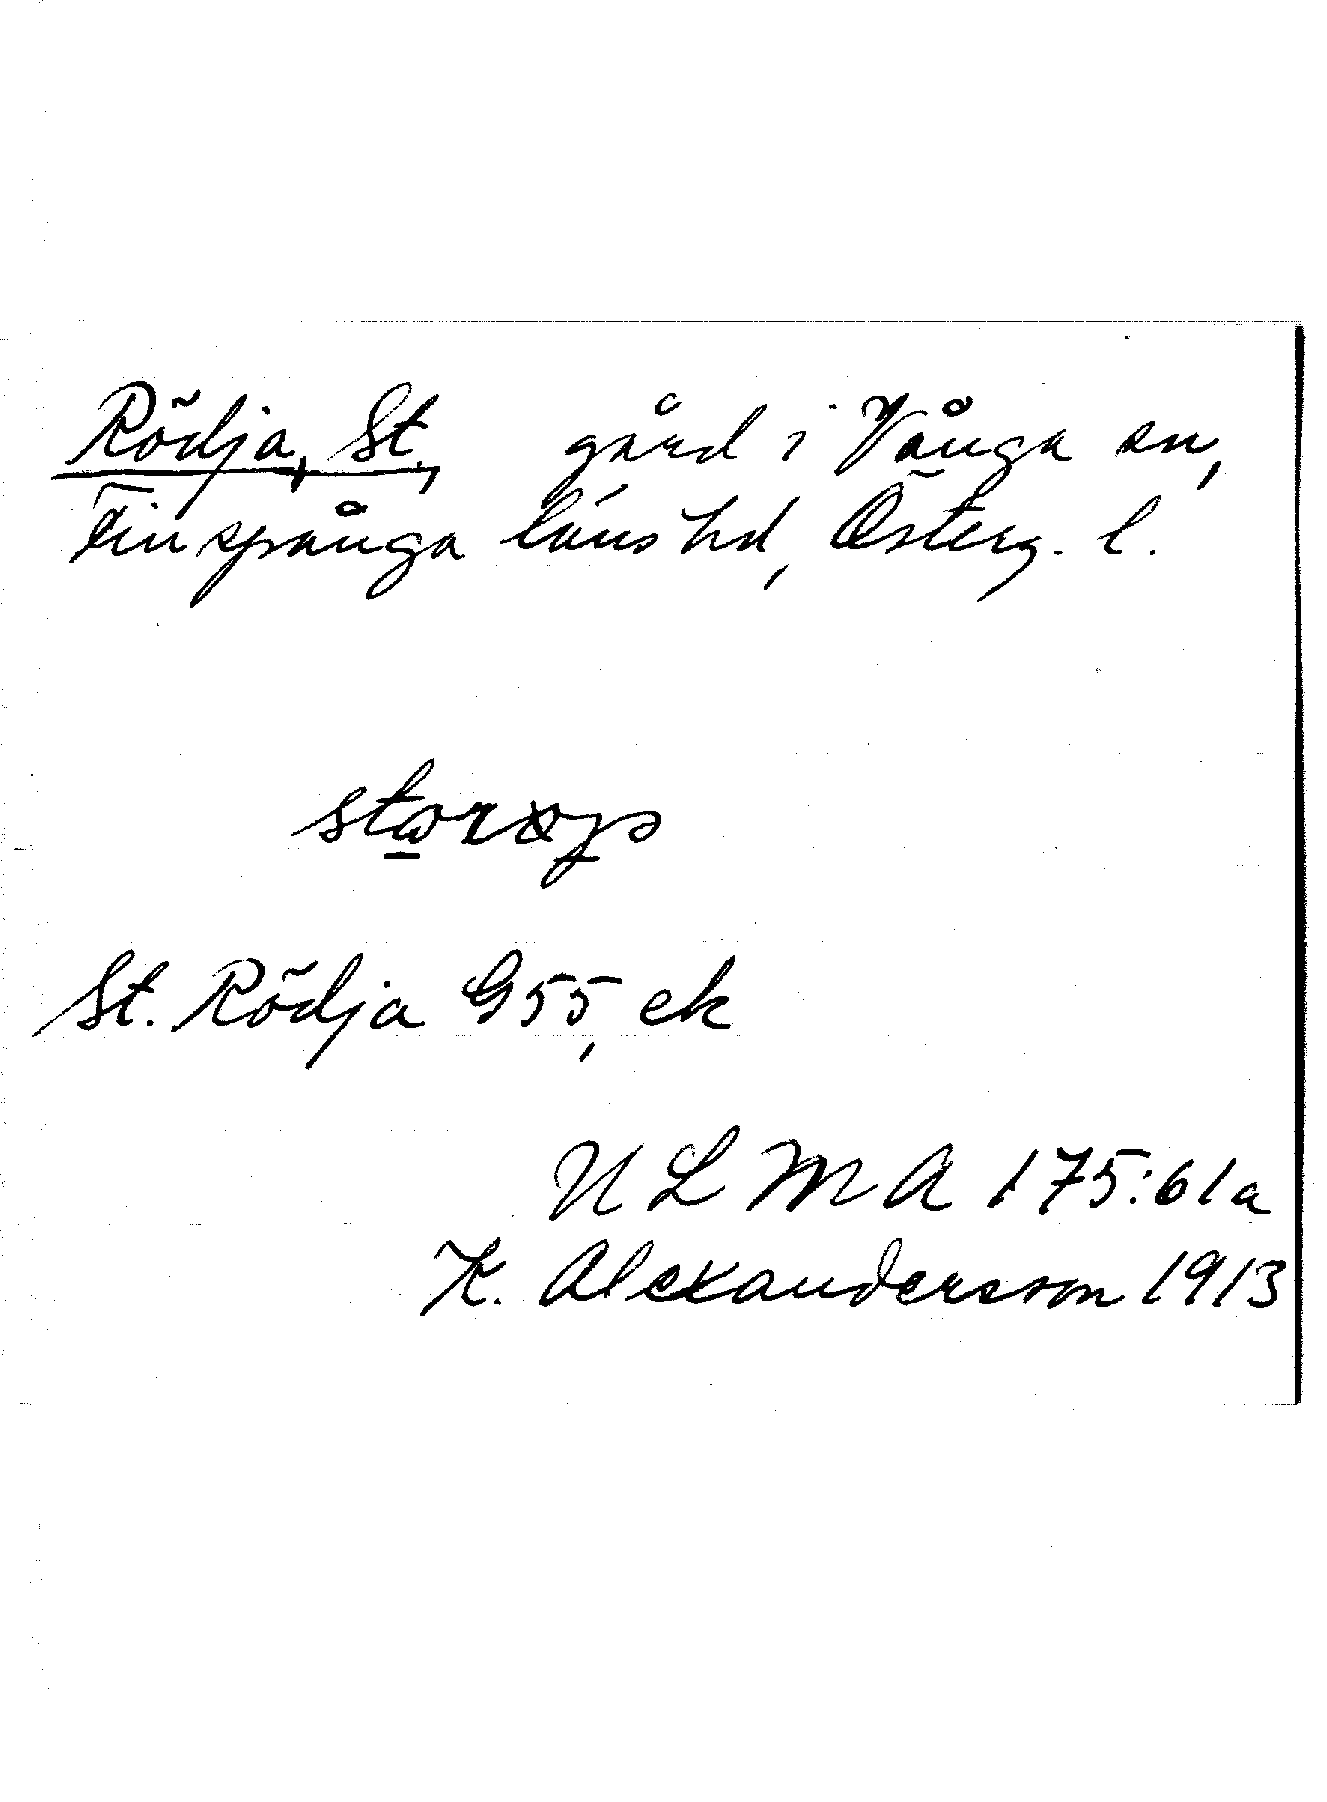 Rödja, St., gård i Vånga sn,
Finspånga läns hd, Österg. l.
St. Rödja G55, ek
ULMA 175:61a
K. Alexandersson 1913